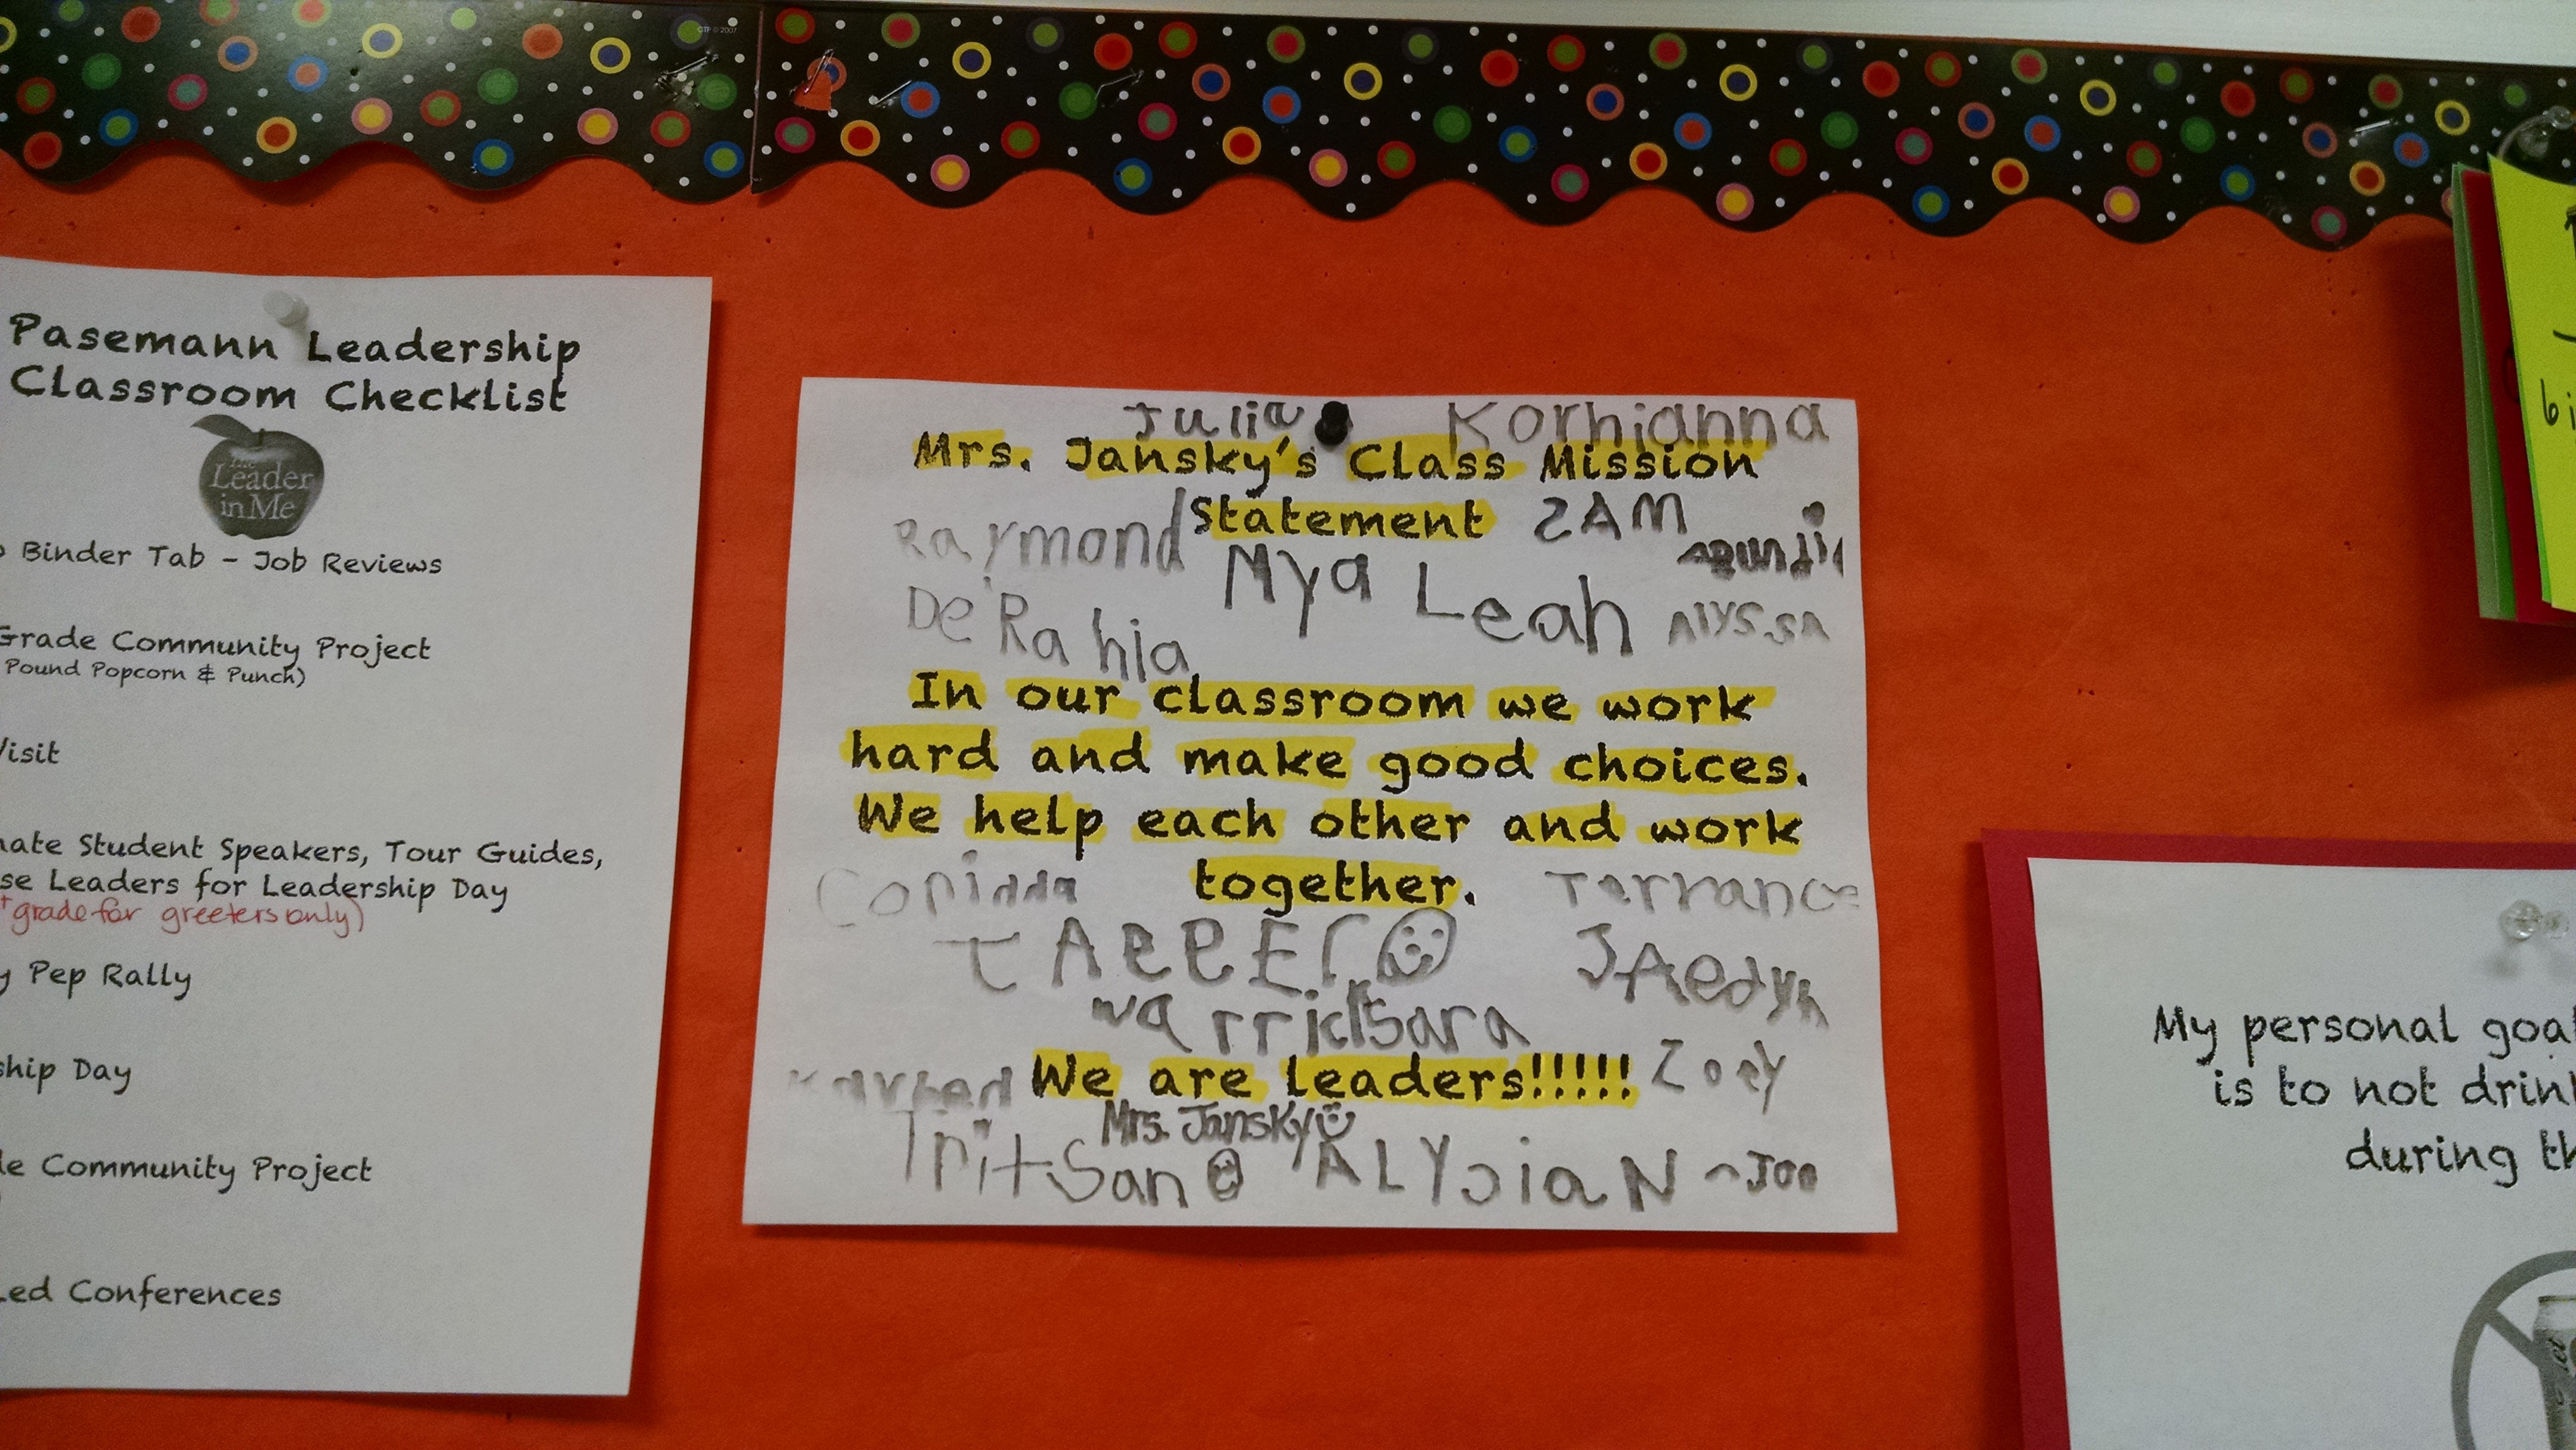 GTP © 2007
Pasemann Leadership
Classroom Checklist
The
Leader
in Me
Binder Tab - Job Reviews
Grade Community Project
Pound Popcorn & Punch)
Visit
nate Student Speakers, Tour Guides,
se Leaders for Leadership Day
grade for greeters only)
y Pep Rally
ship Day
de Community Project
Led Conferences
Julia Korhianna
Mrs. Jansky's Class Mission
Raymond Statement SAM
Mya Leah
De'Rahja ALYSSA
In our classroom we work
hard and make good choices.
We help each other and work
together. Terrance
JAedyn
Warrick Sara
We are leaders!!!!! Zoey
Mrs. Jansky
TritSan ALYsiaN Joe
bi
My personal goal
is to not drink
during th